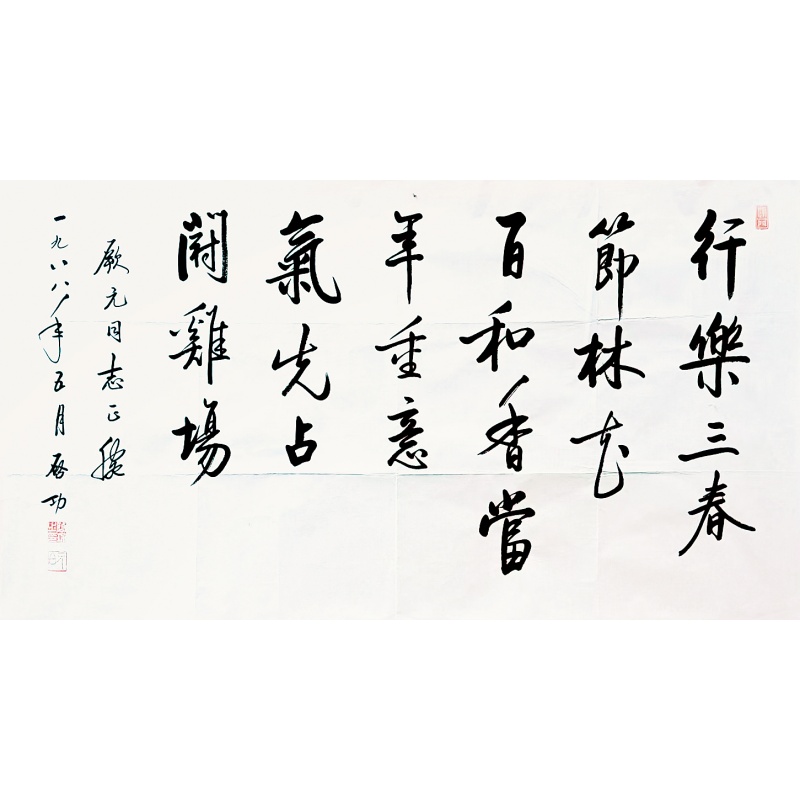 行樂三春
節林花
百和香當
年重意
氣先占
鬪雞場
厥元同志正腕
一九八八年五月 啓功